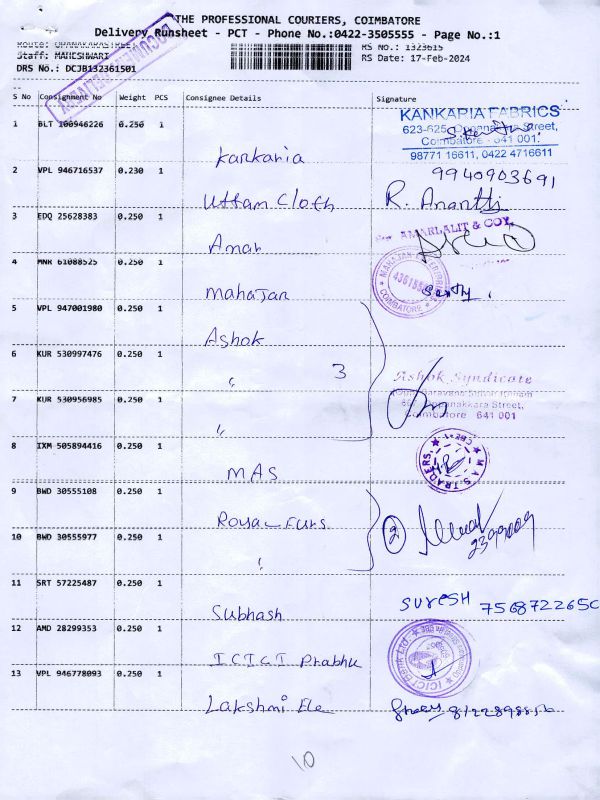 THE PROFESSIONAL COURIERS, COIMBATORE
Delivery Runsheet - PCT - Phone No.:0422-3505555 - Page No.:1
Staff: MAHESHWARI
RS No.: 1323615
DRS No.: DCJB132361501
RS Date: 17-Feb-2024
S No Consignment No Weight PCS Consignee Details Signature
KANKARIA FABRICS
623-625, Oppanakara Street,
Coimbatore - 641 001.
98771 16611, 0422 4716611
1 BLT 100946226 0.250 1 Kankaria
9940903691
2 VPL 946716537 0.230 1 Uttam Cloth R. Ananthi
AMARLALIT & COY.
3 EDQ 25628383 0.250 1 Amar
4 MNR 61088525 0.250 1 Mahajan
COIMBATORE
5 VPL 947001980 0.250 1 Ashok
6 KUR 530997476 0.250 1 " 3
Ashok Syndicate
Oppanakkara Street,
Coimbatore 641 001
7 KUR 530956985 0.250 1 "
8 IXM 505894416 0.250 1 MAS
M A S TRADERS. CBE-1
9 BWD 30555108 0.250 1 Royal Furs
10 BWD 30555977 0.250 1 " 2
11 SRT 57225487 0.250 1 Subhash SURESH
12 AMD 28299353 0.250 1 ICICI Prabhu
ICICI Bank Ltd.
13 VPL 946778093 0.250 1 Lakshmi Ele
10